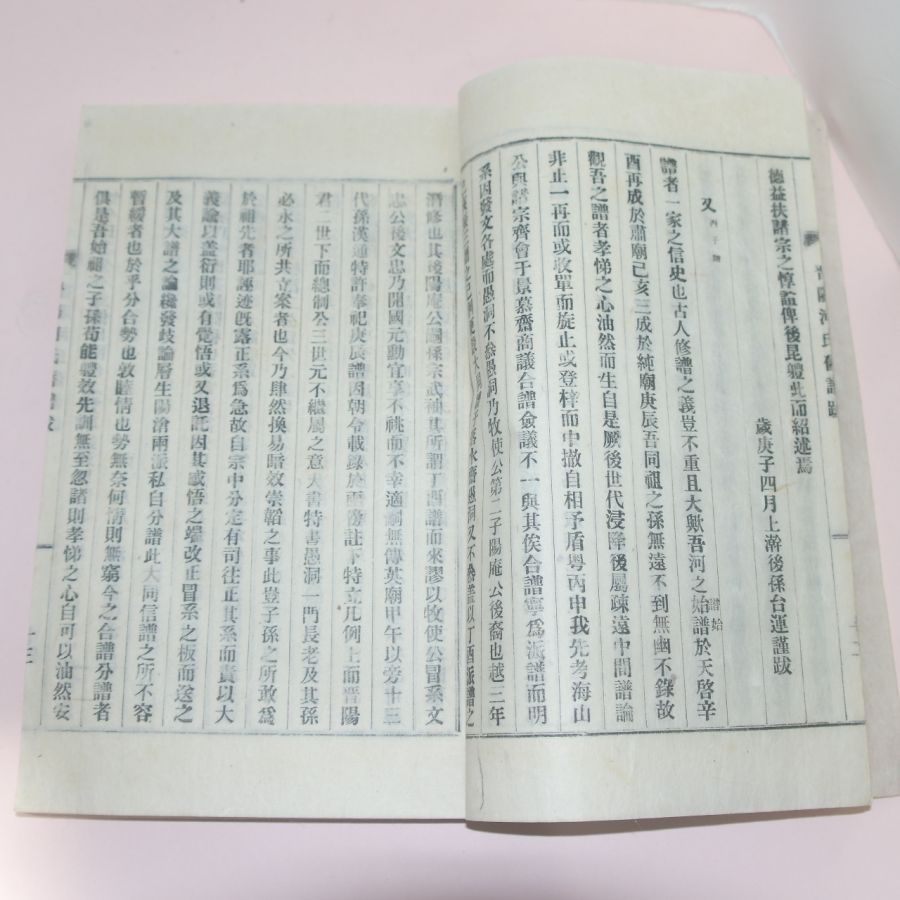 德益扶諸宗之惇諡俾後昆軆此而紹述焉
歲庚子四月上澣後孫台運謹跋
又 丙子譜
譜者一家之信史也古人修譜之義豈不重且大歟吾河之始譜於天啓辛
譜始
酉再成於肅廟己亥三成於純廟庚辰吾同祖之孫無遠不到無幽不錄故
觀吾之譜者孝悌之心油然而生自是厥後世代浸降後屬疎遠中間譜論
非止一再而或收單而旋止或登梓而中撤自相矛盾粤丙申我先考海山
公與譜宗齊會于景慕齋商議合譜僉議不一與其俟合譜寧爲派譜而明
系因發文各處而愚洞不叅愚洞乃牧使公第二子陽庵公後裔也越三年
潛修也其後陽庵公嗣孫宗武袖其所謂丁酉譜而來謬以牧使公冒系文
忠公後文忠乃開國元勳宜享不祧而不幸適嗣無傳英廟甲午以旁十三
代孫漢通特許奉祀庚辰譜因朝令載錄於兩傍註下特立凡例上而晋陽
君二世下而總制公三世元不繼屬之意大書特書愚洞一門長老及其孫
必永之所共立案者也今乃肆然換易暗效崇韜之事此豈子孫之所敢爲
於祖先者耶誣迹旣露正系爲急故自宗中分定有司往正其系而責以大
義諭以盖衍則或有覺悟或又退託因其感悟之端改正冒系之板而送之
及其大譜之論纔發歧論層生陽滄兩派私自分譜此大同信譜之所不容
暫緩者也於乎分合勢也敦睦情也勢無奈何情則無窮今之合譜分譜者
俱是吾始祖之子孫苟能軆效先訓無至忽諸則孝悌之心自可以油然安
十三